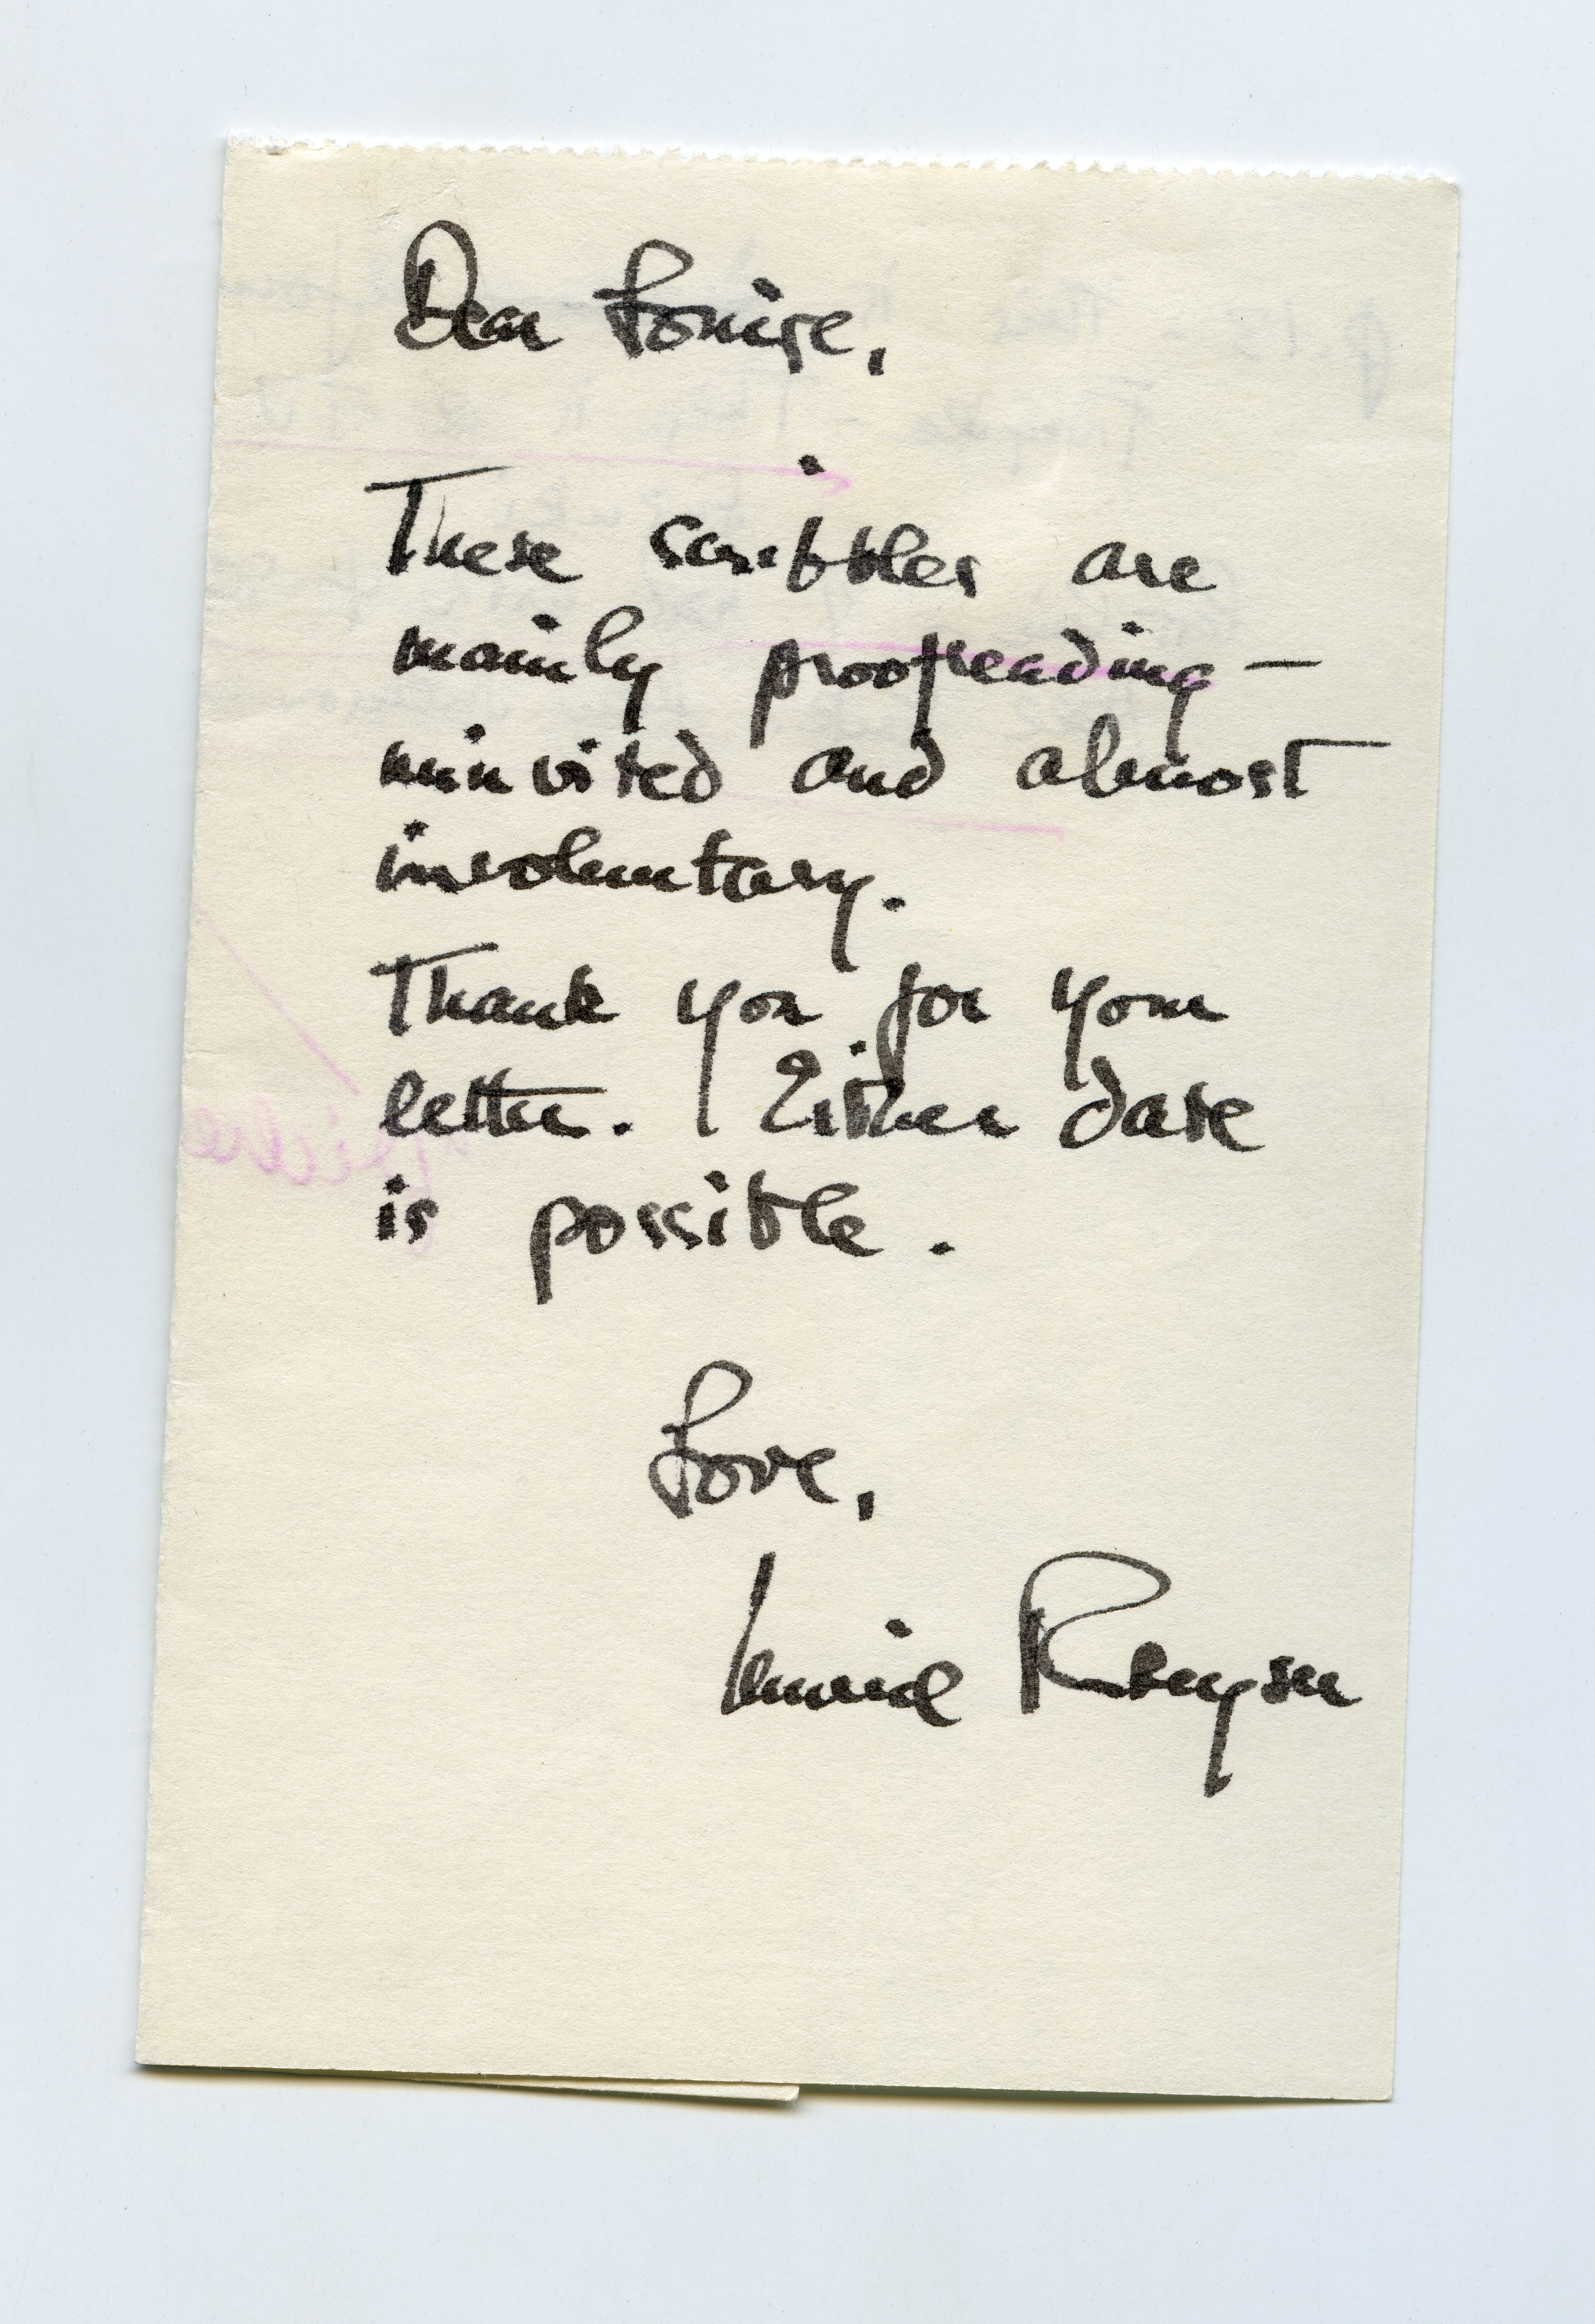 Dear Louise,
These scribbles are
mainly proofreading —
uninvited and almost
involuntary.
Thank you for your
letter. Either date
is possible.
Love,
Muriel Rukeyser